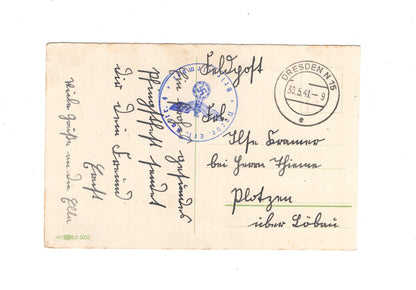 Feldpost
DRESDEN N 15
30.5.41.-8
e
Frl.
Ilse Kramer
bei Herrn Thieme
Plotzen
über Löbau
Ein frohes gesundes
Pfingstfest sendet
dir dein Freund
Viele Grüße an die Eltern